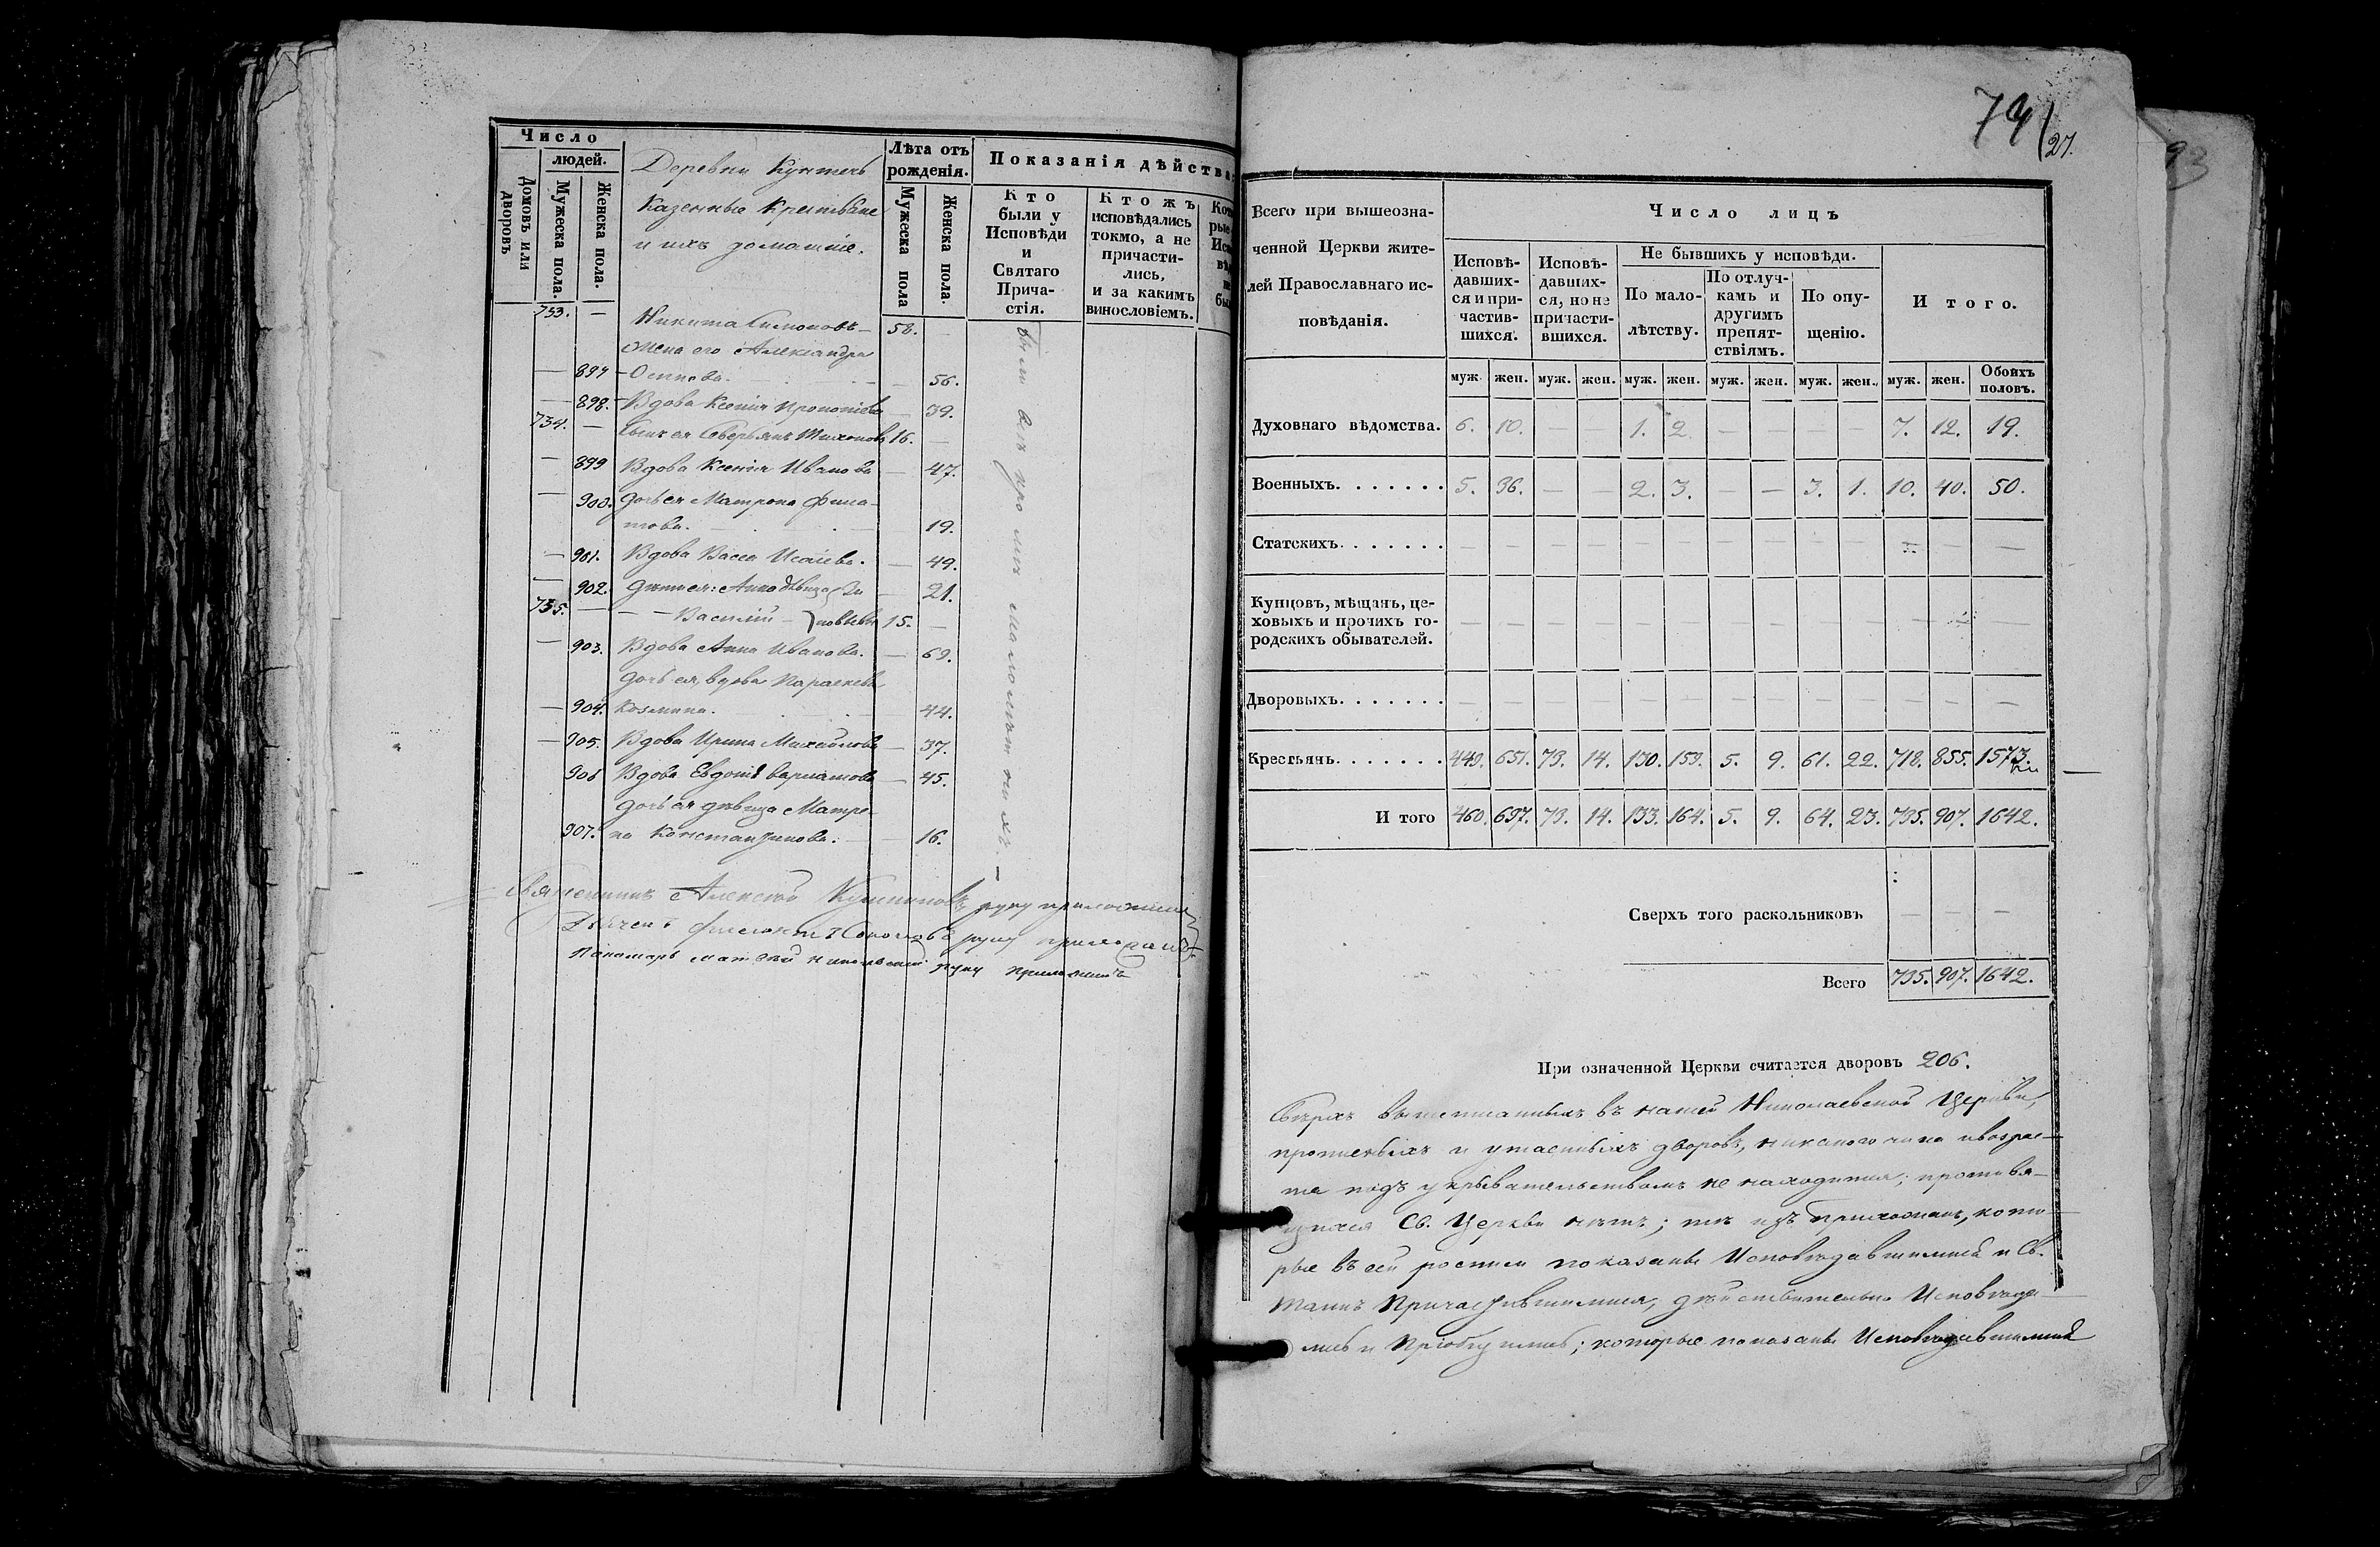 Число
людей.
Домовъ или дворовъ
Мужеска пола.
Женска пола.
Деревни
Казенные Крестьяне
и ихъ домашніе.
Лѣта отъ рожденія.
Мужеска пола
Женска пола.
Показанія дѣйства
Кто были у Исповѣди и Святаго Прича-стія.
Ктожъ исповѣдались токмо, а не причасти-лись, и за какимъ винословіемъ.
733. — Никита Симоновъ — 58. —
Жена его Александра
— 897 Осипова. — 56.
— 898. Вдова Ксенія Прокопіева — 39.
734. — Сынъ ея Северьянъ Тихоновъ 16. —
— 899 Вдова Ксенія Иванова — 47.
— 900. Дочь ея Матрона Фила-
това. — 19.
— 901. Вдова Васса Исаіева. — 49.
— 902. Дѣти ея: Анна дѣвица — 21.
735. — Василій 15. —
— 903. Вдова Анна Иванова. — 69.
Дочь ея, вдова Параскева
— 904. Козмина. — 44.
— 905. Вдова Ирина Михайлова — 37.
906 Вдова Евдокія Варламова — 45.
Дочь ея дѣвица Матро-
907. на Константинова. — 16.
были вкромѣ малолѣтнихъ. —
Священникъ Алексѣй руку приложилъ
руку приложилъ
Пономарь Матвей руку приложилъ
74
27.
93
Всего при вышеозна-ченной Церкви жите-лей Православнаго ис-повѣданія.
Число лицъ
Исповѣ-давших-ся и при-частив-шихся.
Исповѣ-давших-ся, но не причасти-вшихся.
Не бывшихъ у исповѣди.
По мало-лѣтству.
По отлуч-камъ и другимъ препят-ствіямъ.
По опу-щенію.
Итого.
муж. жен. муж. жен. муж. жен. муж. жен. муж. жен. муж. жен. Обоихъ половъ.
Духовнаго вѣдомства. 6. 10. — — 1. 2. — — — — 7. 12. 19.
Военныхъ. 5. 36. — — 2. 3. — — 3. 1. 10. 40. 50.
Статскихъ. — — — — — — — — — — — — —
Купцовъ, мѣщанъ, це-ховыхъ и прочихъ го-родскихъ обывателей. — — — — — — — — — — — — —
Дворовыхъ. — — — — — — — — — — — — —
Крестьянъ. 449. 651. 73. 14. 130. 159. 5. 9. 61. 22. 718. 855. 1573.
И того 460. 697. 73. 14. 133. 164. 5. 9. 64. 23. 735. 907. 1642.
Сверхъ того раскольниковъ — — —
Всего 735. 907. 1642.
При означенной Церкви считается дворовъ 206.
Сверхъ вышеписанныхъ въ нашей Николаевской Церкви,
и утаенныхъ дворовъ, никакого чина и возрас-
та подъ укрывательствомъ не находится; противя-
щихся Св. Церкви нѣтъ; тѣ изъ прихожанъ, кото-
рые въ сей росписи показаны Исповѣдавшимися и Св.
Таинъ Причастившимися, дѣйствительно Исповѣда-
лись и Пріобщились; которые показаны Исповѣдавшимися